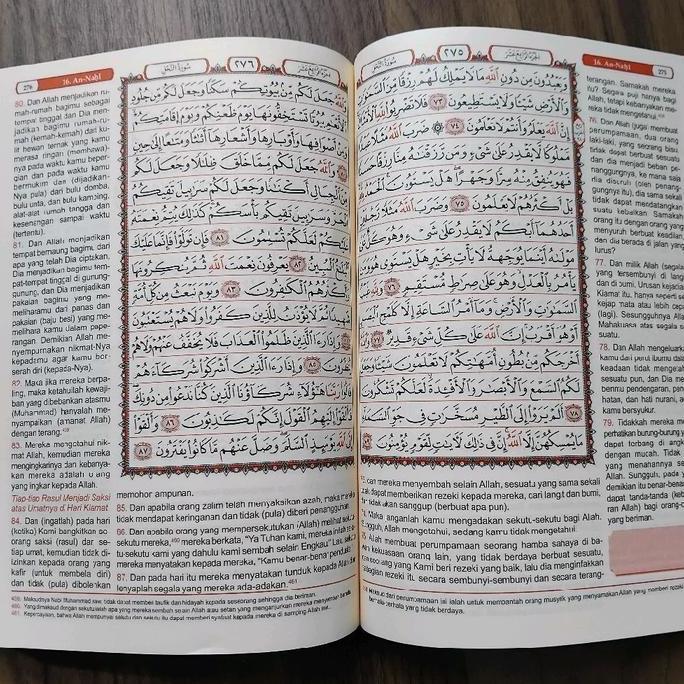 ٢٧٥
سُورَةُ النَّحْلِ
16. An-Naḥl
275
وَيَعْبُدُونَ مِن دُونِ اللَّهِ مَا لَا يَمْلِكُ لَهُمْ رِزْقًا مِّنَ السَّمَٰوَٰتِ
وَالْأَرْضِ شَيْئًا وَلَا يَسْتَطِيعُونَ ٧٣ فَلَا تَضْرِبُوا لِلَّهِ
إِنَّ اللَّهَ يَعْلَمُ وَأَنتُمْ لَا تَعْلَمُونَ ٧٤ ضَرَبَ اللَّهُ مَثَلًا عَبْدًا
مَّمْلُوكًا لَّا يَقْدِرُ عَلَىٰ شَيْءٍ وَمَن رَّزَقْنَٰهُ مِنَّا رِزْقًا
فَهُوَ يُنفِقُ مِنْهُ سِرًّا وَجَهْرًا هَلْ يَسْتَوُۥنَ الْحَمْدُ
بَلْ أَكْثَرُهُمْ لَا يَعْلَمُونَ ٧٥ وَضَرَبَ اللَّهُ مَثَلًا رَّجُلَيْنِ
أَحَدُهُمَا أَبْكَمُ لَا يَقْدِرُ عَلَىٰ شَيْءٍ وَهُوَ كَلٌّ عَلَىٰ
مَوْلَىٰهُ أَيْنَمَا يُوَجِّههُّ لَا يَأْتِ بِخَيْرٍ هَلْ يَسْتَوِي هُوَ وَمَن
يَأْمُرُ بِالْعَدْلِ وَهُوَ عَلَىٰ صِرَٰطٍ مُّسْتَقِيمٍ
السَّمَٰوَٰتِ وَالْأَرْضِ وَمَا أَمْرُ السَّاعَةِ إِلَّا
أَوْ هُوَ أَقْرَبُ إِنَّ اللَّهَ عَلَىٰ كُلِّ شَيْءٍ قَدِيرٌ
أَخْرَجَكُم مِّن بُطُونِ أُمَّهَٰتِكُمْ لَا تَعْلَمُونَ شَيْئًا وَجَعَلَ
لَكُمُ السَّمْعَ وَالْأَبْصَٰرَ وَالْأَفْـِٔدَةَ لَعَلَّكُمْ تَشْكُرُونَ
٧٨ أَلَمْ يَرَوْا إِلَى الطَّيْرِ مُسَخَّرَٰتٍ فِي جَوِّ السَّمَاءِ
مَا يُمْسِكُهُنَّ إِلَّا اللَّهُ إِنَّ فِي ذَٰلِكَ لَءَايَٰتٍ لِّقَوْمٍ يُؤْمِنُونَ
terangan. Samakah mereka
itu? Segala puji bagi
Allah, tetapi kebanyakan me-
reka tidak mengetahui.
76. Dan Allah (juga) membuat
perumpamaan, dua orang
laki-laki, yang seorang bisu,
tidak dapat berbuat sesuatu
dan dia menjadi beban pe-
nanggungnya, ke mana saja
dia disuruh (oleh penang-
gungnya itu), dia sama sekali
tidak dapat mendatangkan
suatu kebaikan. Samakah
orang itu dengan orang yang
menyuruh berbuat keadilan,
dan dia berada di jalan yang
lurus?
77. Dan milik Allah (segala)
yang tersembunyi di langit
dan di bumi. Urusan kejadian
Kiamat itu, hanya seperti se-
kejap mata atau lebih cepat
(lagi). Sesungguhnya Allah
Mahakuasa atas segala se-
suatu.
78. Dan Allah mengeluarkan
kamu dari perut ibumu dalam
keadaan tidak mengetahui
sesuatu pun, dan Dia mem-
berimu pendengaran, pengli-
hatan, dan hati nurani, agar
kamu bersyukur.
79. Tidakkah mereka mem-
perhatikan burung-burung yang
dapat terbang di angkasa
dengan mudah. Tidak ada
yang menahannya selain
Allah. Sungguh, pada yang
demikian itu benar-benar ter-
dapat tanda-tanda (kebesaran
Allah) bagi orang-orang
yang beriman.
73. Dan mereka menyembah selain Allah, sesuatu yang sama sekali
tidak dapat memberikan rezeki kepada mereka, dari langit dan bumi,
dan tidak akan sanggup (berbuat apa pun).
Maka janganlah kamu mengadakan sekutu-sekutu bagi Allah.
Sungguh, Allah mengetahui, sedang kamu tidak mengetahui.
Allah membuat perumpamaan seorang hamba sahaya di ba-
wah kekuasaan orang lain, yang tidak berdaya berbuat sesuatu,
dan seorang yang Kami beri rezeki yang baik, lalu dia menginfakkan
sebagian rezeki itu secara sembunyi-sembunyi dan secara terang-
Maksud dari perumpamaan ini ialah untuk membantah orang musyrik yang menyamakan Allah yang memberi rezeki
berhala yang tidak berdaya.
276
16. An-Naḥl
سُورَةُ النَّحْلِ
٢٧٦
وَاللَّهُ جَعَلَ لَكُم مِّن بُيُوتِكُمْ سَكَنًا وَجَعَلَ لَكُم مِّن جُلُودِ
بُيُوتًا تَسْتَخِفُّونَهَا يَوْمَ ظَعْنِكُمْ وَيَوْمَ إِقَامَتِكُمْ
وَمِنْ أَصْوَافِهَا وَأَوْبَارِهَا وَأَشْعَارِهَا أَثَٰثًا وَمَتَٰعًا إِلَىٰ حِينٍ
وَاللَّهُ جَعَلَ لَكُم مِّمَّا خَلَقَ ظِلَٰلًا وَجَعَلَ لَكُم
مِّنَ الْجِبَالِ أَكْنَٰنًا وَجَعَلَ لَكُمْ سَرَٰبِيلَ تَقِيكُمُ
الْحَرَّ وَسَرَٰبِيلَ تَقِيكُم بَأْسَكُمْ كَذَٰلِكَ يُتِمُّ نِعْمَتَهُ
عَلَيْكُمْ لَعَلَّكُمْ تُسْلِمُونَ ٨١ فَإِن تَوَلَّوْا فَإِنَّمَا عَلَيْكَ
الْبَلَٰغُ الْمُبِينُ ٨٢ يَعْرِفُونَ نِعْمَتَ اللَّهِ ثُمَّ يُنكِرُونَهَا
وَأَكْثَرُهُمُ الْكَٰفِرُونَ ٨٣ وَيَوْمَ نَبْعَثُ مِن كُلِّ أُمَّةٍ
شَهِيدًا ثُمَّ لَا يُؤْذَنُ لِلَّذِينَ كَفَرُوا وَلَا هُمْ يُسْتَعْتَبُونَ
وَإِذَا رَءَا الَّذِينَ ظَلَمُوا الْعَذَابَ فَلَا يُخَفَّفُ عَنْهُمْ وَلَا هُمْ
يُنظَرُونَ ٨٥ وَإِذَا رَءَا الَّذِينَ أَشْرَكُوا شُرَكَاءَهُمْ
قَالُوا رَبَّنَا هَٰؤُلَاءِ شُرَكَاؤُنَا الَّذِينَ كُنَّا نَدْعُوا مِن دُونِكَ
فَأَلْقَوْا إِلَيْهِمُ الْقَوْلَ إِنَّكُمْ لَكَٰذِبُونَ ٨٦ وَأَلْقَوْا
إِلَى اللَّهِ يَوْمَئِذٍ السَّلَمَ وَضَلَّ عَنْهُم مَّا كَانُوا يَفْتَرُونَ ٨٧
80. Dan Allah menjadikan ru-
mah-rumah bagimu sebagai
tempat tinggal dan Dia men-
jadikan bagimu rumah-rumah
(kemah-kemah) dari ku-
lit hewan ternak yang kamu
merasa ringan (membawa)-
nya pada waktu kamu beper-
gian dan pada waktu kamu
bermukim dan (dijadikan-
Nya pula) dari bulu domba,
bulu unta, dan bulu kambing,
alat-alat rumah tangga dan
kesenangan sampai waktu
(tertentu).
81. Dan Allah menjadikan
tempat bernaung bagimu dari
apa yang telah Dia ciptakan,
Dia menjadikan bagimu tem-
pat-tempat tinggal di gunung-
gunung, dan Dia menjadikan
pakaian bagimu yang me-
meliharamu dari panas dan
pakaian (baju besi) yang me-
melihara kamu dalam pepe-
rangan. Demikian Allah me-
nyempurnakan nikmat-Nya
kepadamu agar kamu ber-
serah diri (kepada-Nya).
82. Maka jika mereka berpa-
ling, maka ketahuilah kewajib-
an yang dibebankan atasmu
(Muhammad) hanyalah me-
nyampaikan (amanat Allah)
dengan terang.
83. Mereka mengetahui nik-
mat Allah, kemudian mereka
mengingkarinya dan kebanya-
kan mereka adalah orang
yang ingkar kepada Allah.
Tiap-tiap Rasul Menjadi Saksi
atas Umatnya di Hari Kiamat
84. Dan (ingatlah) pada hari
(ketika) Kami bangkitkan se-
orang saksi (rasul) dari se-
tiap umat, kemudian tidak di-
izinkan kepada orang yang
kafir (untuk membela diri)
dan tidak (pula) dibolehkan
memohon ampunan.
85. Dan apabila orang zalim telah menyaksikan azab, maka mereka
tidak mendapat keringanan dan tidak (pula) diberi penangguhan.
86. Dan apabila orang yang mempersekutukan (Allah) melihat sekutu-
sekutu mereka,⁴⁶⁰ mereka berkata, "Ya Tuhan kami, mereka inilah seku-
tu-sekutu kami yang dahulu kami sembah selain Engkau." Lalu sekutu
mereka menyatakan kepada mereka, "Kamu benar-benar pendusta."
87. Dan pada hari itu mereka menyatakan tunduk kepada Allah dan
lenyaplah segala yang mereka ada-adakan.⁴⁶¹
459. Maksudnya Nabi Muhammad saw. tidak dapat memberi taufik dan hidayah kepada seseorang sehingga dia beriman.
460. Yang dimaksud dengan sekutu ialah apa yang mereka sembah selain Allah atau setan yang menganjurkan mereka menyembah
461. Kepercayaan, bahwa Allah mempunyai sekutu dan sekutu itu dapat memberi syafaat kepada mereka di samping Allah